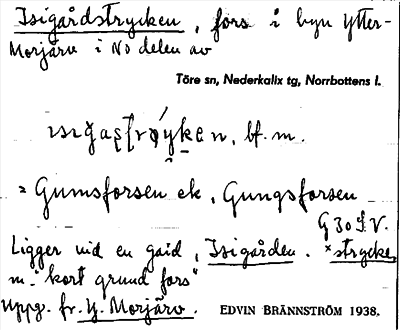 Isigårdstrycken, fors i byn Ytter-
Morjärv i NO delen av
Töre sn, Nederkalix tg, Norrbottens l.
bf. m.
= Gumsforsen ek., Gungsforsen
G 30 f V.
Ligger vid en gård, Isigården. ˣstrycke
m. "kort grund fors"
Uppg. fr. Y. Morjärv. EDVIN BRÄNNSTRÖM 1938.